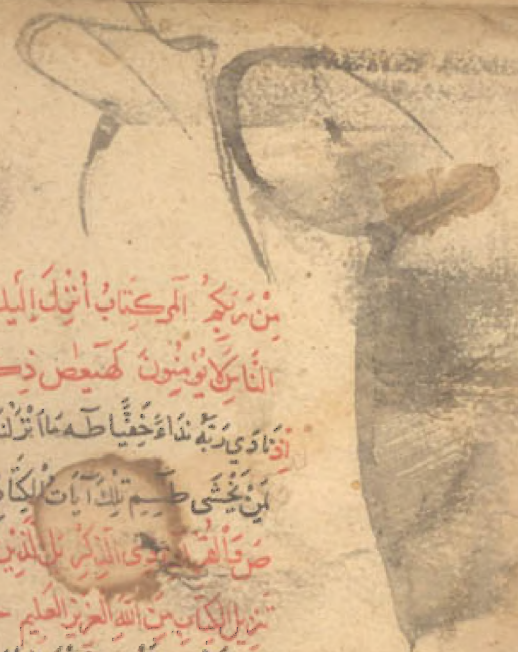 مِنْ رَبِّكُمْ الٓمر كِتَابٌ أُنْزِلَ إِلَيْكَ
النَّاسِ لَا يُؤْمِنُونَ كٓهٰيٰعٓصٓ
إِذْ نَادَي رَبَّهُ نِدَاءً خَفِيًّا طٰه مَا اَنْزَلْنَا
لِمَنْ يَخْشَى طٰسٓمٓ تِلْكَ آيَاتُ الْكِتَابِ
صٓ وَالْقُرْآنِ ذِي الذِّكْرِ بَلِ الَّذِينَ
تَنْزِيلُ الْكِتَابِ مِنَ اللّٰهِ الْعَزِيزِ الْعَلِيمِ